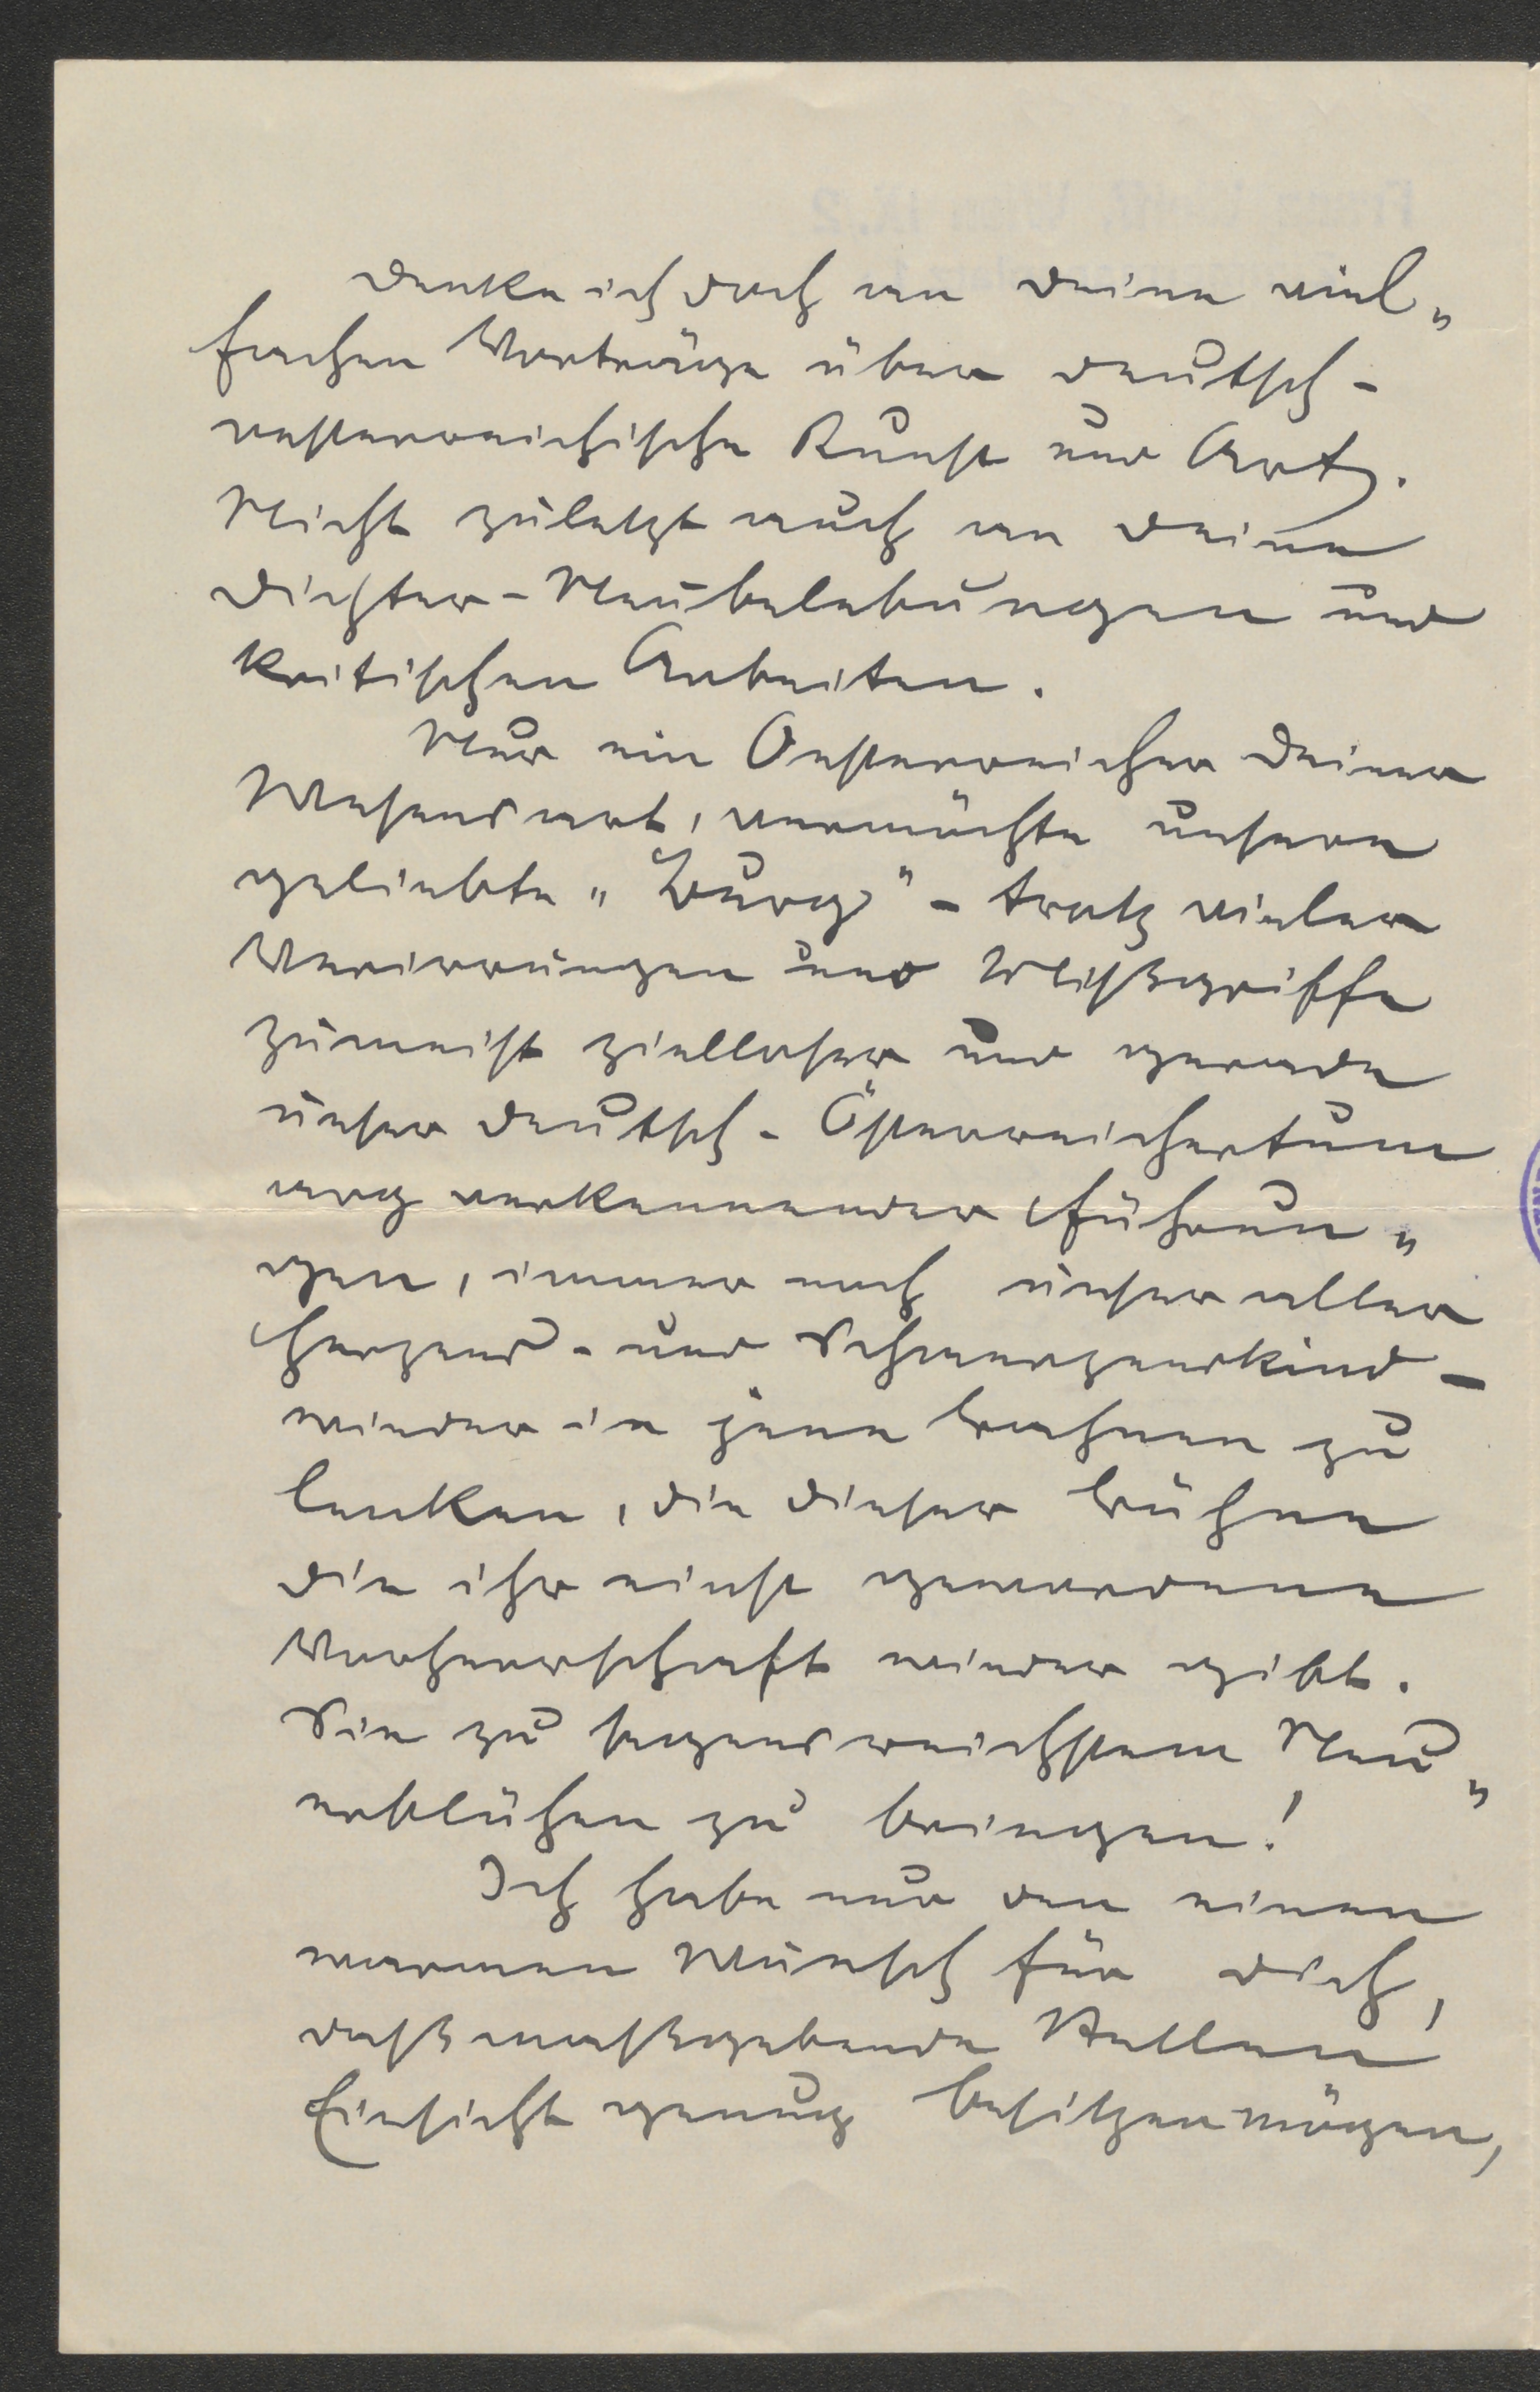 Denke ich doch an Deine viel„
fachen Vorträge über deutsch-
oesterreichische Kunst und Art.
Nicht zuletzt auch an Deine
Dichter-Neubelebungen und
kritischen Arbeiten.
Nur ein Oesterreicher Deiner
Wesensart, vermöchte unsere
geliebte „Burg" - trotz vieler
Verirrungen und Mißgriffe
zumeist zielloser und gerade
unser Deutsch-Österreichertum
arg verkennender Führun„
gen, immer noch unser aller
Herzens- und Schmerzenskind -
wieder in jene Bahnen zu
lenken, die dieser Bühne
die ihr einst gewordene
Vorherrschaft wieder gibt.
Sie zu segensreichstem Neu„
erblühen zu bringen!
Ich habe nur den einen
warmen Wunsch für Dich,
daß maßgebende Stellen
Einsicht genug besitzen mögen,